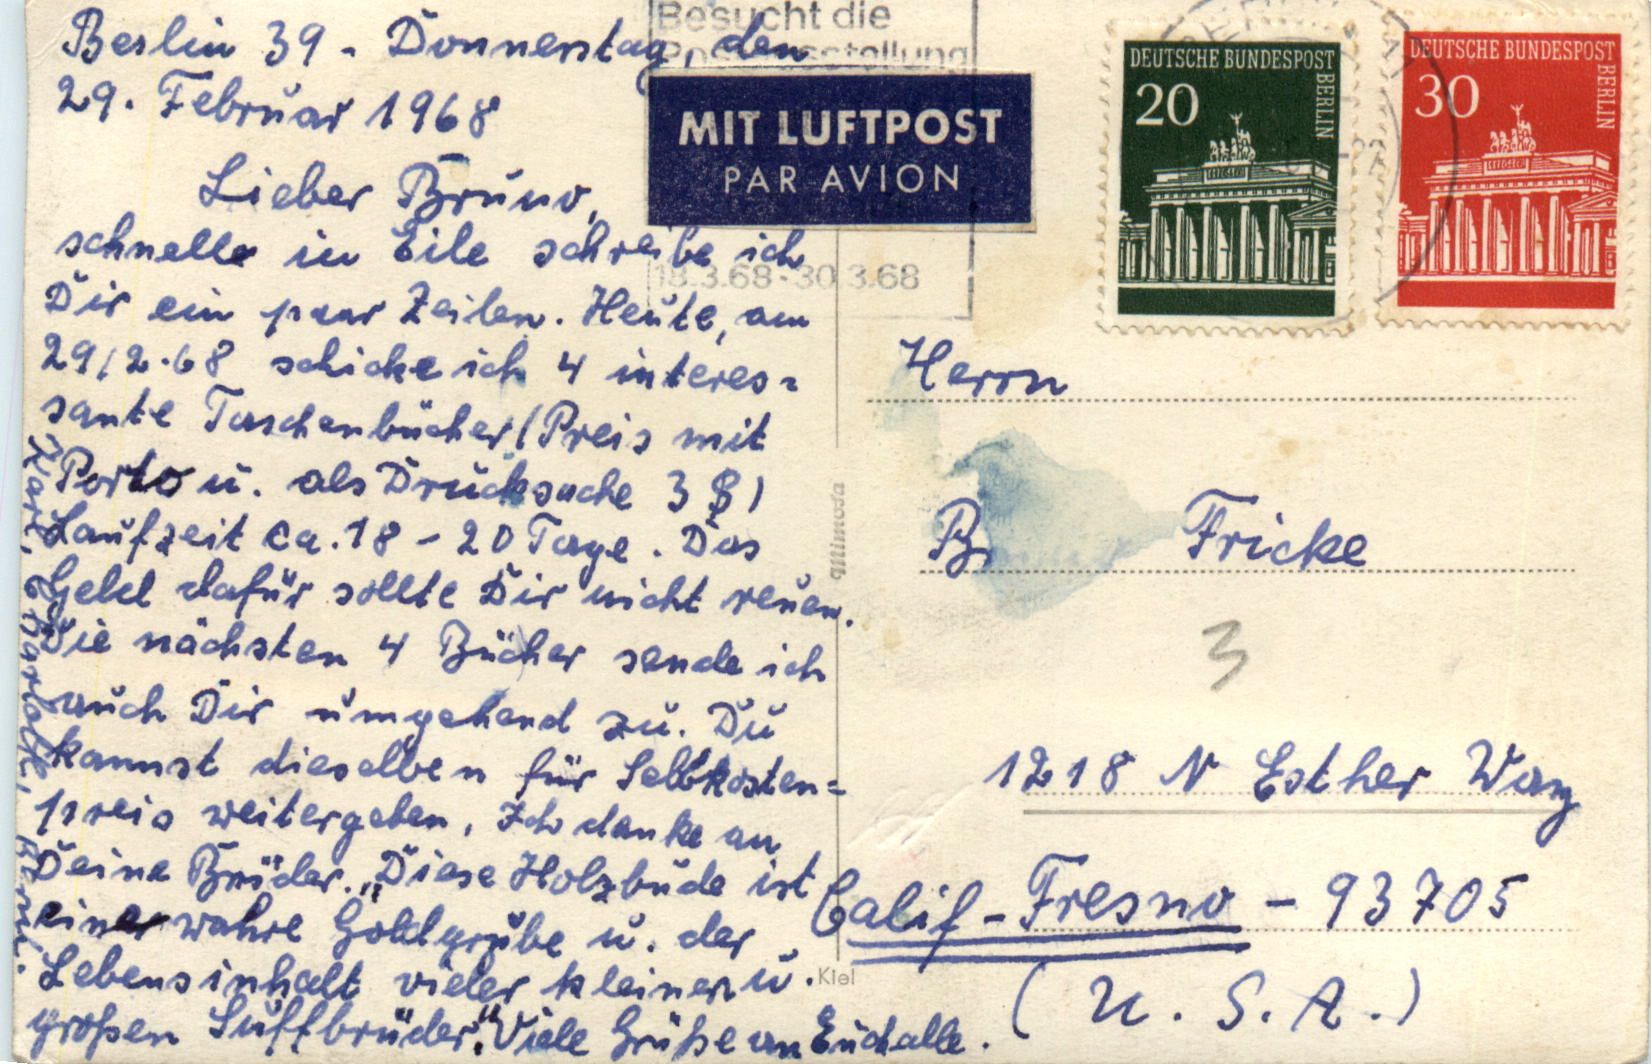 Berlin 39 - Donnerstag, den
29. Februar 1968
Lieber Bruno,
schnell in Eile schreibe ich
Dir ein paar Zeilen. Heute, am
29/2.68 schicke ich 4 interes=
sante Taschenbücher (Preis mit
Porto u. als Drucksache 3 $)
Laufzeit ca. 18 - 20 Tage. Das
Geld dafür sollte Dir nicht reuen.
Die nächsten 4 Bücher sende ich
auch Dir umgehend zu. Du
kannst dieselben für Selbkosten=
preis weitergeben. Ich danke an
Deine Brüder. "Diese Holzbude ist
eine wahre Goldgrube u. der
Lebensinhalt vieler kleiner u.
großen Suffbrüder." Viele Grüße an Euch alle.
Besucht die
18.3.68-30.3.68
MIT LUFTPOST
PAR AVION
DEUTSCHE BUNDESPOST
BERLIN
20
DEUTSCHE BUNDESPOST
BERLIN
30
Mimosa
Kiel
Herrn
Fricke
3
1218 N Esther Way
Calif - Fresno - 93705
(U.S.A.)